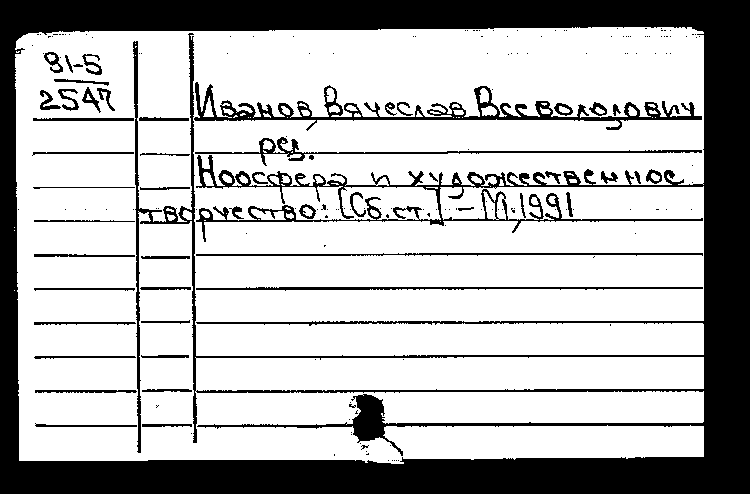 91-5
2547
Иванов, Вячеслав Всеволодович
ред.
Ноосфера и художественное
творчество: [Сб. ст.] - М., 1991